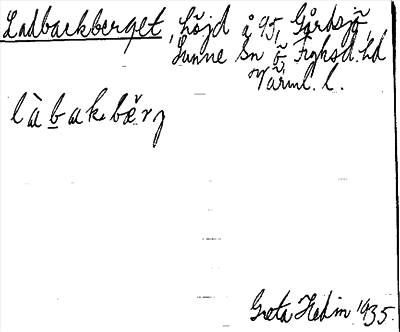 Ladbackberget, höjd å 95, Gårdsjö,
Sunne Sn Ö Fryksd. hd
Värml. l.
làbakbærj
Greta Hedin 1935.